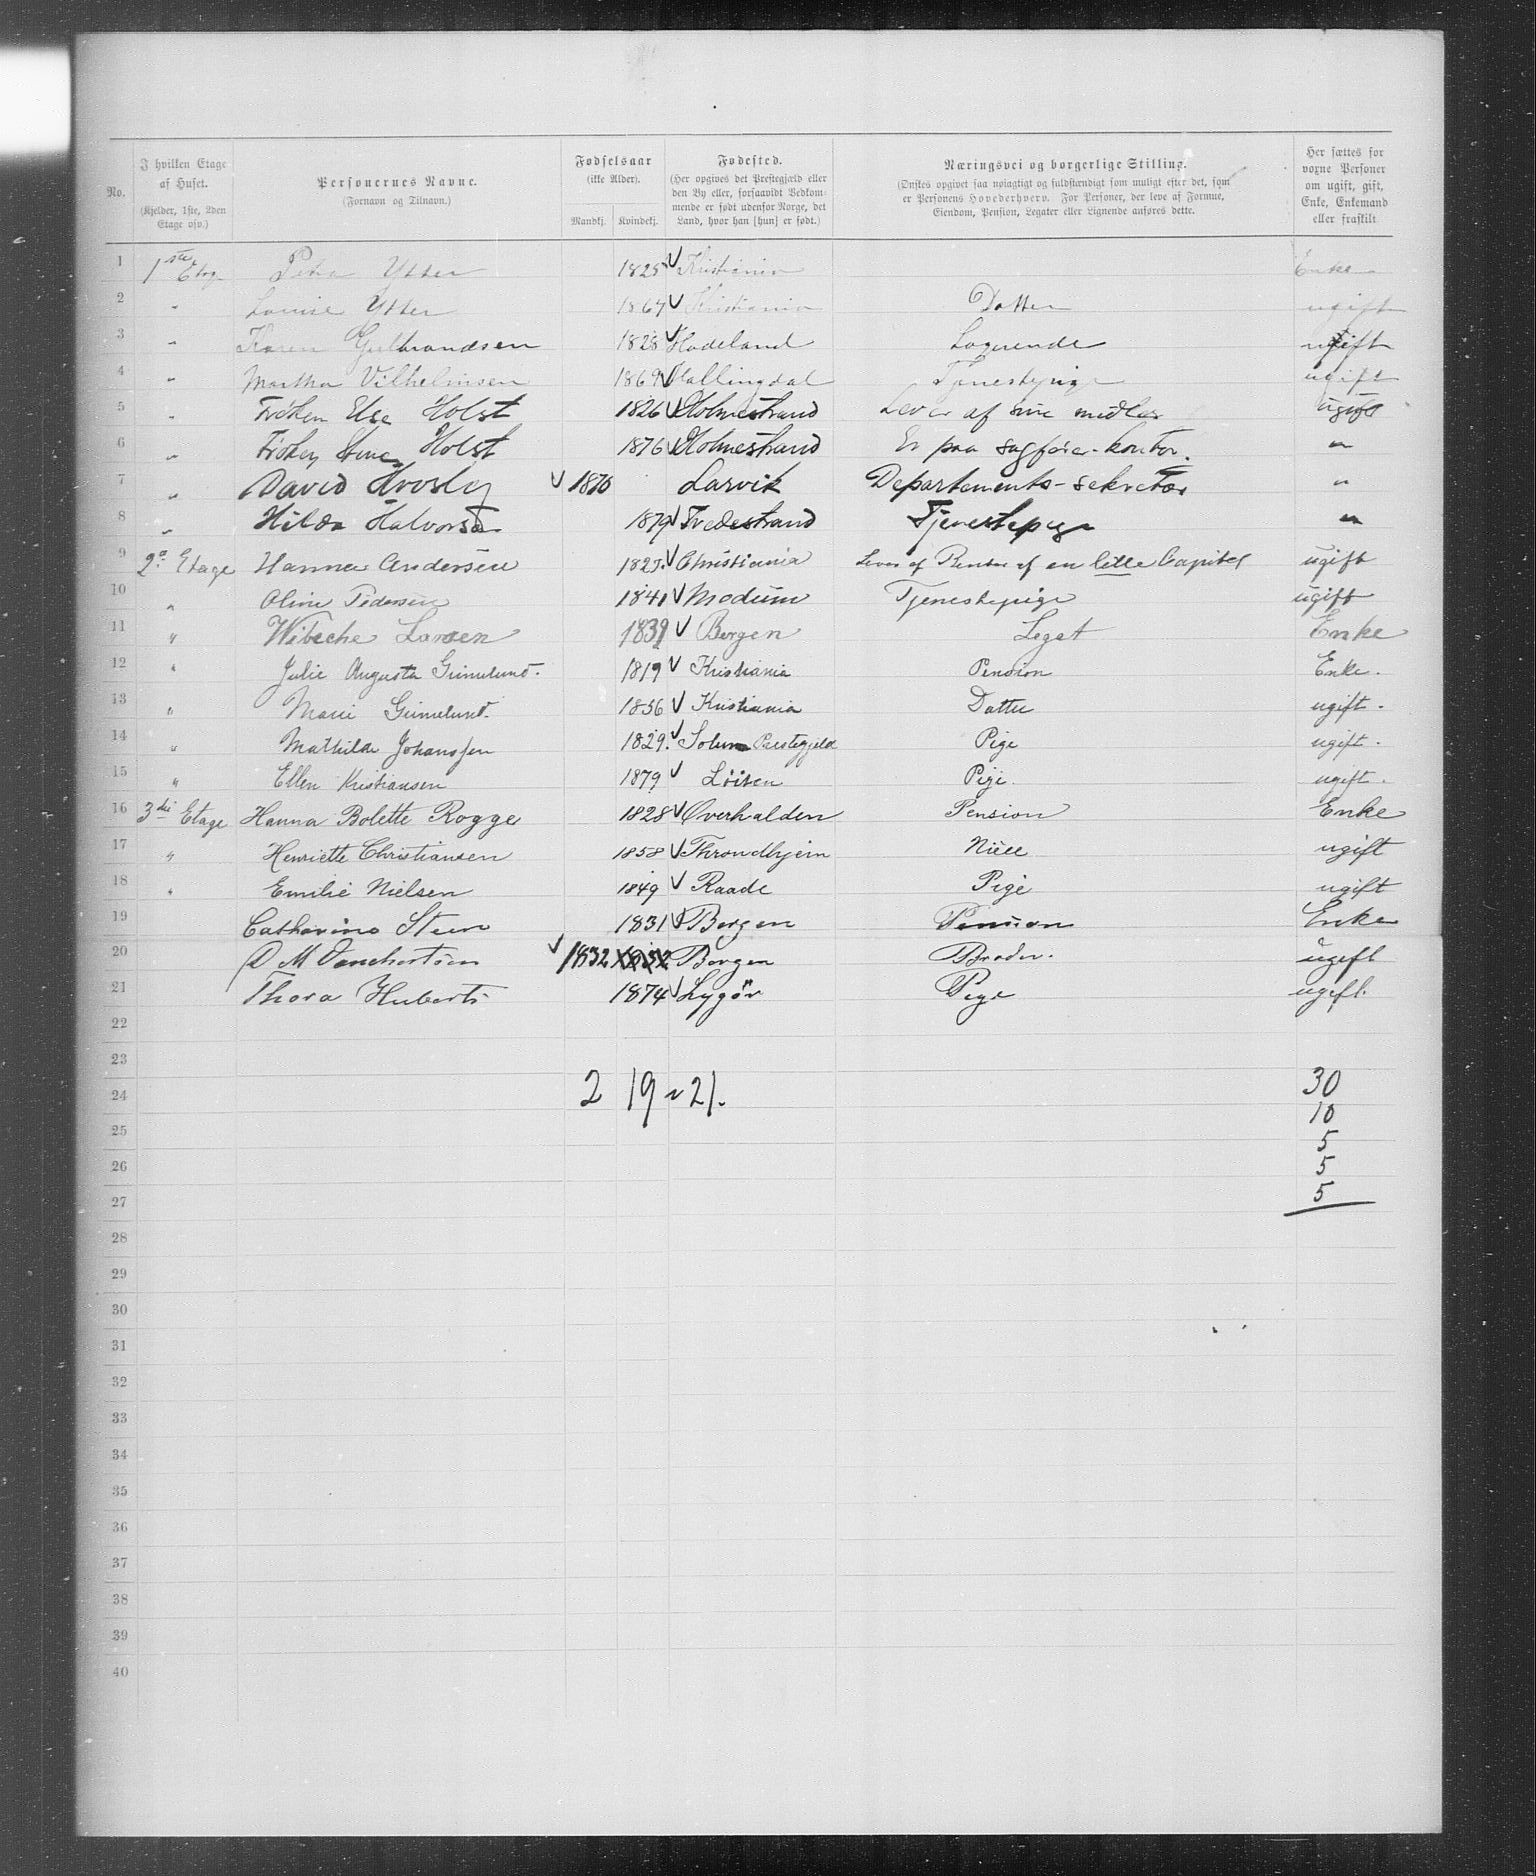 No.
I hvilken Etage af Huset. (Kjelder, 1ste, 2den Etage osv.)
Personernes Navne. (Fornavn og Tilnavn.)
Fødselsaar (ikke Alder). Mandkj. Kvindekj.
Fødested. (Her opgives det Prestegjæld eller den By eller, forsaavidt Vedkommende er født udenfor Norge, det Land, hvor han [hun] er født.)
Næringsvei og borgerlige Stilling. (Ønskes opgivet saa nøiagtigt og fuldstændigt som muligt efter det, som er Personens Hovederhverv. For Personer, der leve af Formue, Eiendom, Pension, Legater eller Lignende anføres dette.)
Her sættes for voxne Personer om ugift, gift, Enke, Enkemand eller fraskilt
1 1ste Etag Ytter 1825 Kristiania Enke
2 " Louise Ytter 1864 Kristiania Datter ugift
3 " Karen Gulbrandsen 1828 Hadeland Logerende ugift
4 " Martha Vilhelmsen 1869 Hallingdal Tjenestepige ugift
5 " Frøken Else Holst 1826 Holmestrand Lever af sine midler ugift
6 " Frøken Holst 1876 Holmestrand Er paa sagfører-kontor. "
7 " David 1870 Larvik Departements-sekretær "
8 " Hilda Halvorsen 1879 Tvedestrand Tjenestepige "
9 2. Etage Hanna Andersen 1827. Christiania Lever af Renter af en lille Capital ugift
10 " Oline Pedersen 1841 Modum Tjenestepige ugift
11 " Wibeche Larsen 1839 Bergen Legat Enke
12 " Julie Augusta Grimelund. 1819 Kristiania Pension Enke.
13 " Marie Grimelund. 1856 Kristiania Datter ugift.
14 " Mathilde Johanssen 1829. Solum Præstegjeld Pige ugift.
15 " Ellen Kristiansen 1879 Löiten Pige. ugift.
16 3die Etage Hanna Bolette Rogge 1828 Overhalden Pension Enke
17 " Henriette Christiansen 1858 Throndhjem Niece ugift
18 " Emilie Nielsen 1849 Raade Pige ugift
19 Catharine Steen 1831 Bergen Pension Enke
20 D M Danchertsen 1832 Bergen Broder. ugift
21 Thora Huberts 1874 Lygör Pige ugift.
22
23
24 2 19 ~ 21. 30
10
25 5
26 5
27 5
28
29
30
31
32
33
34
35
36
37
38
39
40